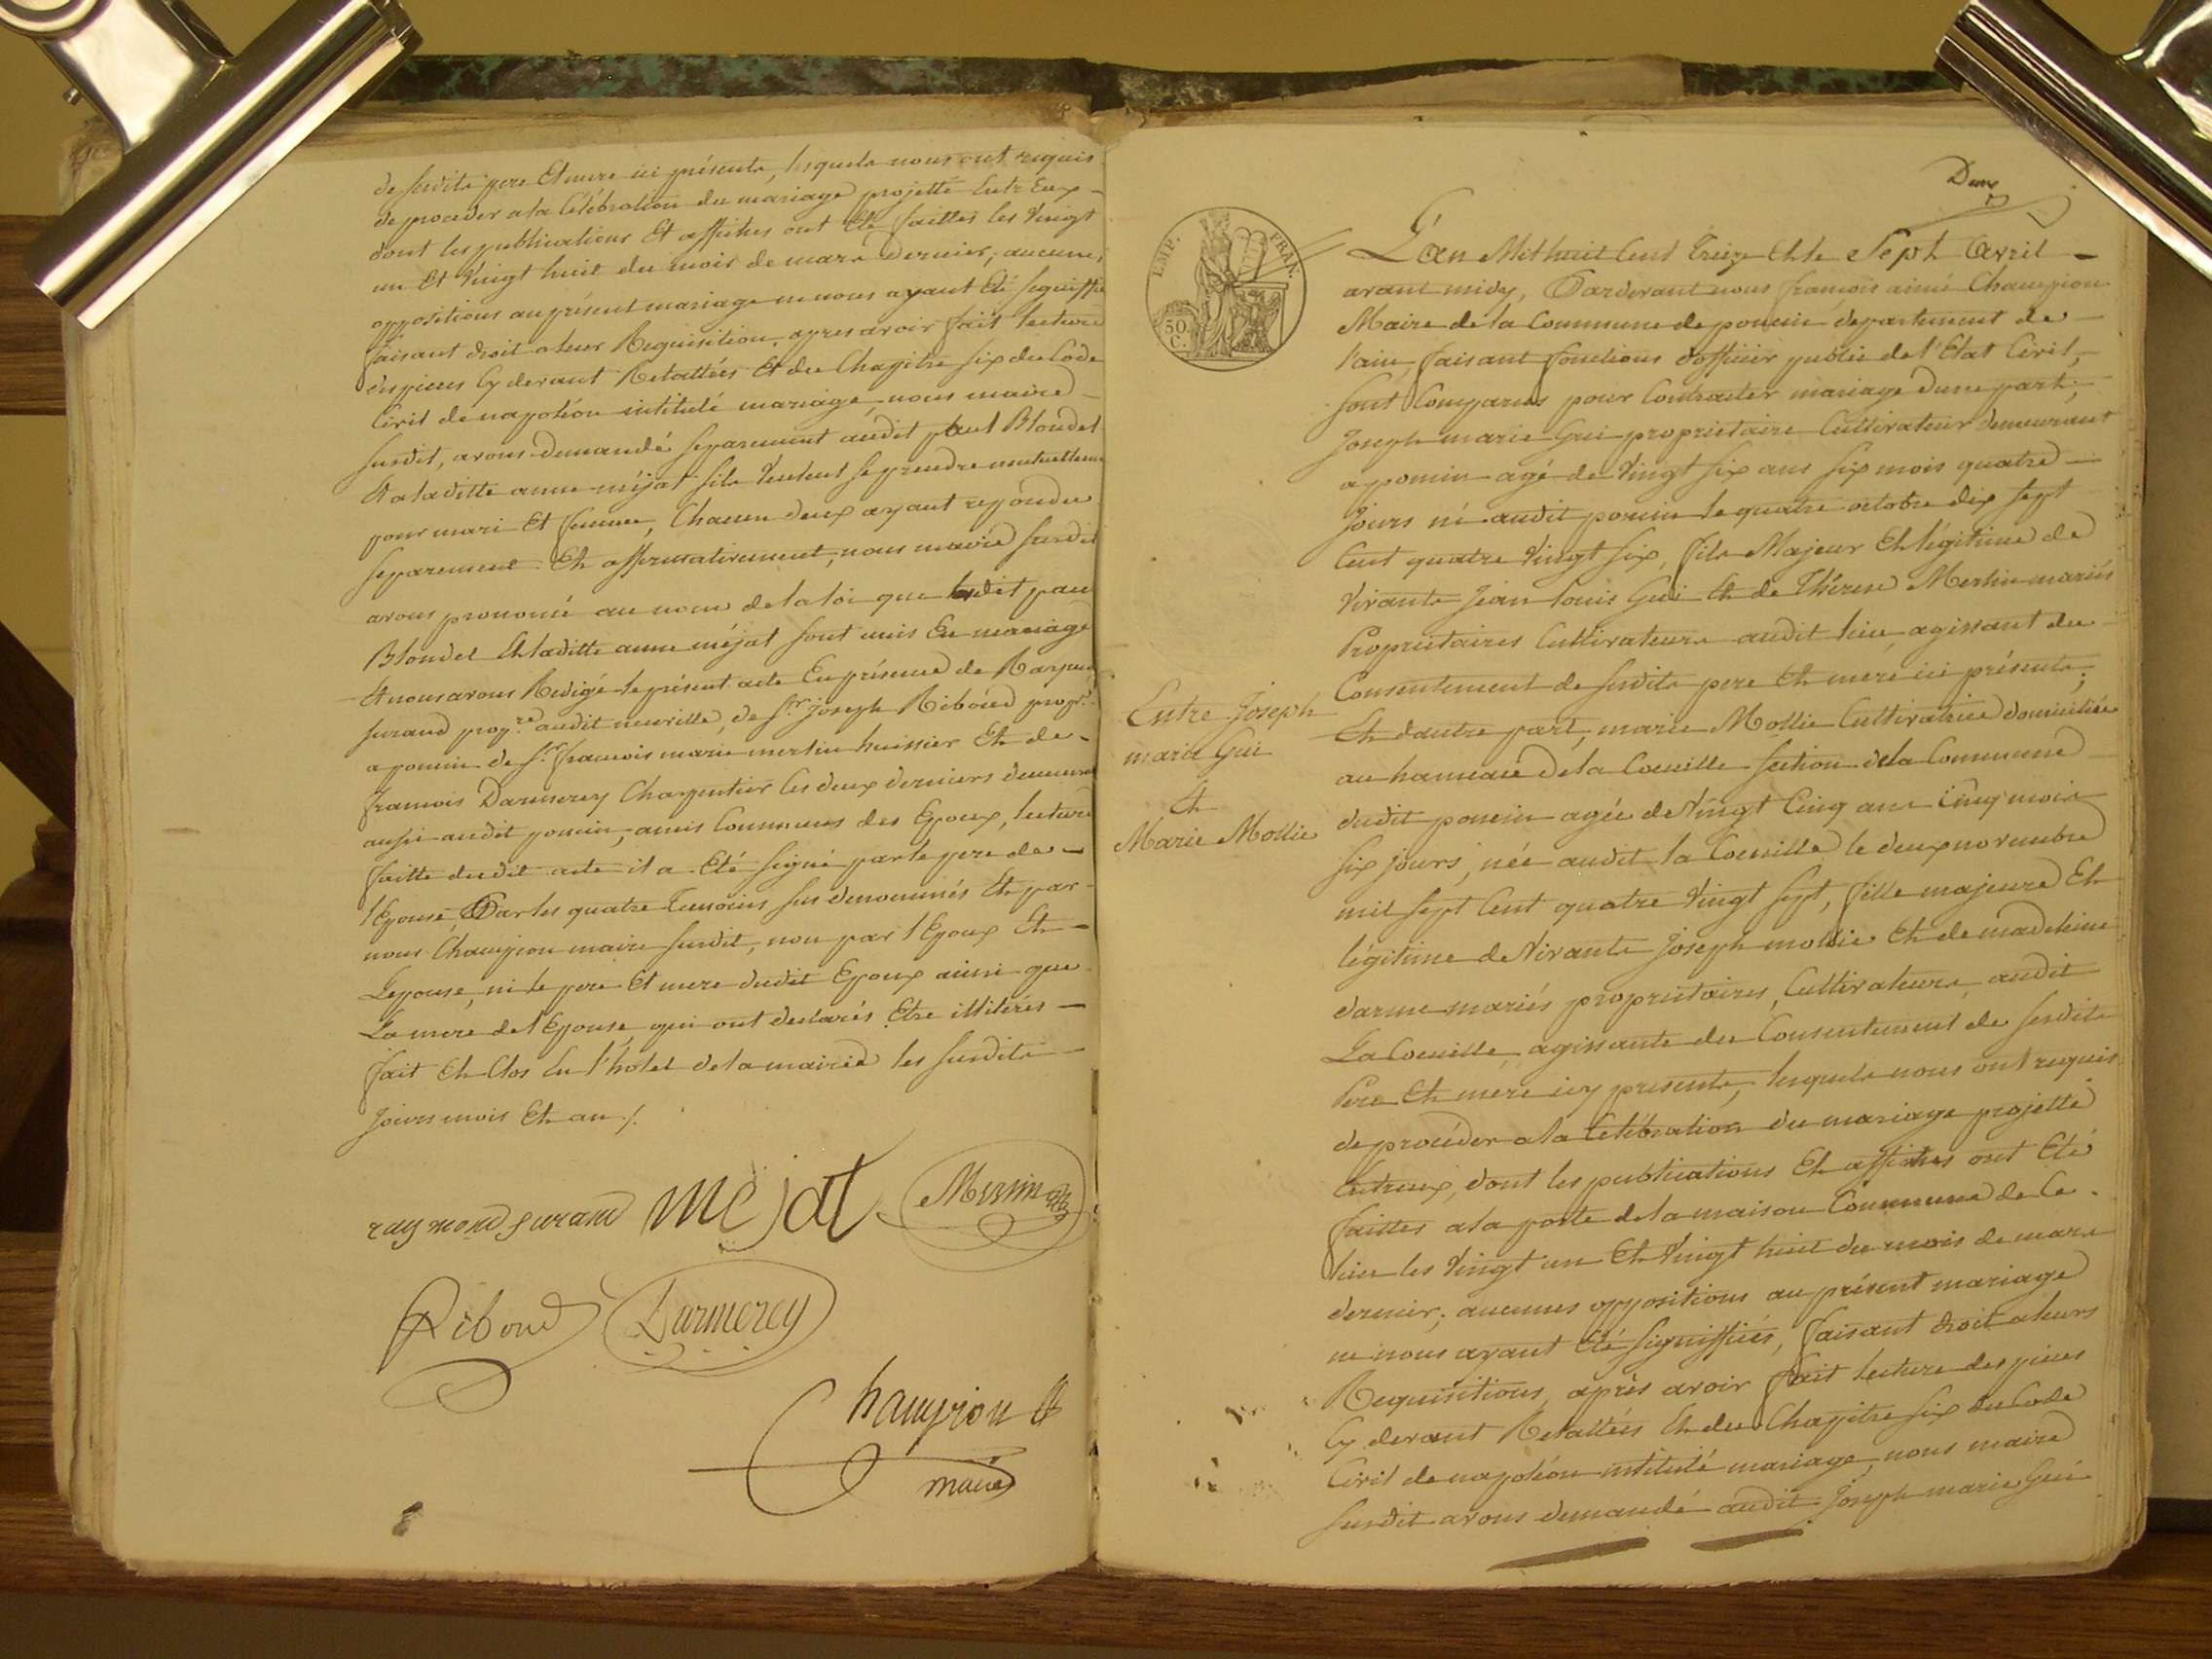 de susdits pere Et mere ici présents, lesquels nous ont requis
de proceder a la Célébration du mariage projetté Entr'Eux
dont les publications Et affiches ont Eté faittes les Vingt
un Et Vingt huit du mois de mars Dernier, aucunes
oppositions au présent mariage ne nous ayant Eté
faisant droit a leur Requisition, apres avoir fait lecture
des pieces Cy devant Relattées Et du Chapitre six du Code
Civil de napoléon intitulé mariage, nous maire
susdit, avons demandé separement audit paul Blondel
Et a laditte anne méjat sils Veulent se prendre mutuellement
pour mari Et femme, Chacun deux ayant repondu
separement Et affirmativement, nous maire susdit
avons prononcé au nom de la loi que ledit paul
Blondel Et laditte anne méjat sont unis En mariage
Et nous avons Redigé le présent acte En présence de
surand prop.re audit neuville, de Sr. joseph Riboud prop.re
a poncin de Sr. francois marie merlin huissier Et de
francois Darmerey Charpentier les deux derniers demeurant
aussi audit poncin, amis Communs des Epoux, lecture
faitte dudit acte il a Eté signé par le pere de
l'Epouse, Par les quatre Temoins sus denommés Et par
nous Champion maire susdit, non par l'Epoux Et
Lepouse, ni le pere Et mere dudit Epoux ainsi que
La mere de l'Epouse, qui ont declarés Etre illitérés
fait Et Clos En l'hotel de la mairie les susdits
Jours mois Et an ./.
raymond surand mejat Merlin
Riboud Darmerey
Champion
maire
Deux
EMP. FRAN.
50 C.
L'an Mil huit Cent Treize Et le Sept Avril
avant midy, Pardevant nous francois aimé Champion
Maire de la Commune de poncin departement de
l'ain, faisant fonctions d'officier public de l'Etat Civil,
sont Comparus pour Contracter mariage dune part,
Joseph marie Gui proprietaire Cultivateur demeurant
a poncin agé de Vingt six ans six mois quatre
jours né audit poncin le quatre octobre dix sept
Cent quatre Vingt six, fils Majeur Et légitime de
Vivants Jean Louis Gui Et de Thérese Merlin mariés
Proprietaires Cultivateurs audit lieu, agissant du
Consentement de susdits pere Et mere ici présents;
Et dautre part, marie Mollie Cultivatrice domiciliée
au hameau de la Coeuille section de la Commune
dudit poncin agée de Vingt Cinq ans cinq mois
six jours, née audit la Coeuille le deux novembre
mil sept Cent quatre Vingt sept, fille majeure Et
légitime de Vivants Joseph mollie Et de madeleine
darme mariés proprietaires, Cultivateurs, audit
La Coeuille, agissante du Consentement de susdits
Pere Et mere icy presents, lesquels nous ont requis
de procéder a la Célébration du mariage projetté
Entreux, dont les publications Et affiches ont Eté
faittes a la porte de la maison Commune de Ce
lieu les Vingt un Et Vingt huit du mois de mars
dernier, aucunes oppositions au présent mariage
ne nous ayant Eté signiffiées, faisant droit a leurs
Requisitions, après avoir fait lecture des pieces
Cy devant Relattées Et du Chapitre six du Code
Civil de napoléon intitulé mariage, nous maire
susdit avons demandé audit Joseph marie Gui
Entre Joseph
marie Gui
Et
Marie Mollie